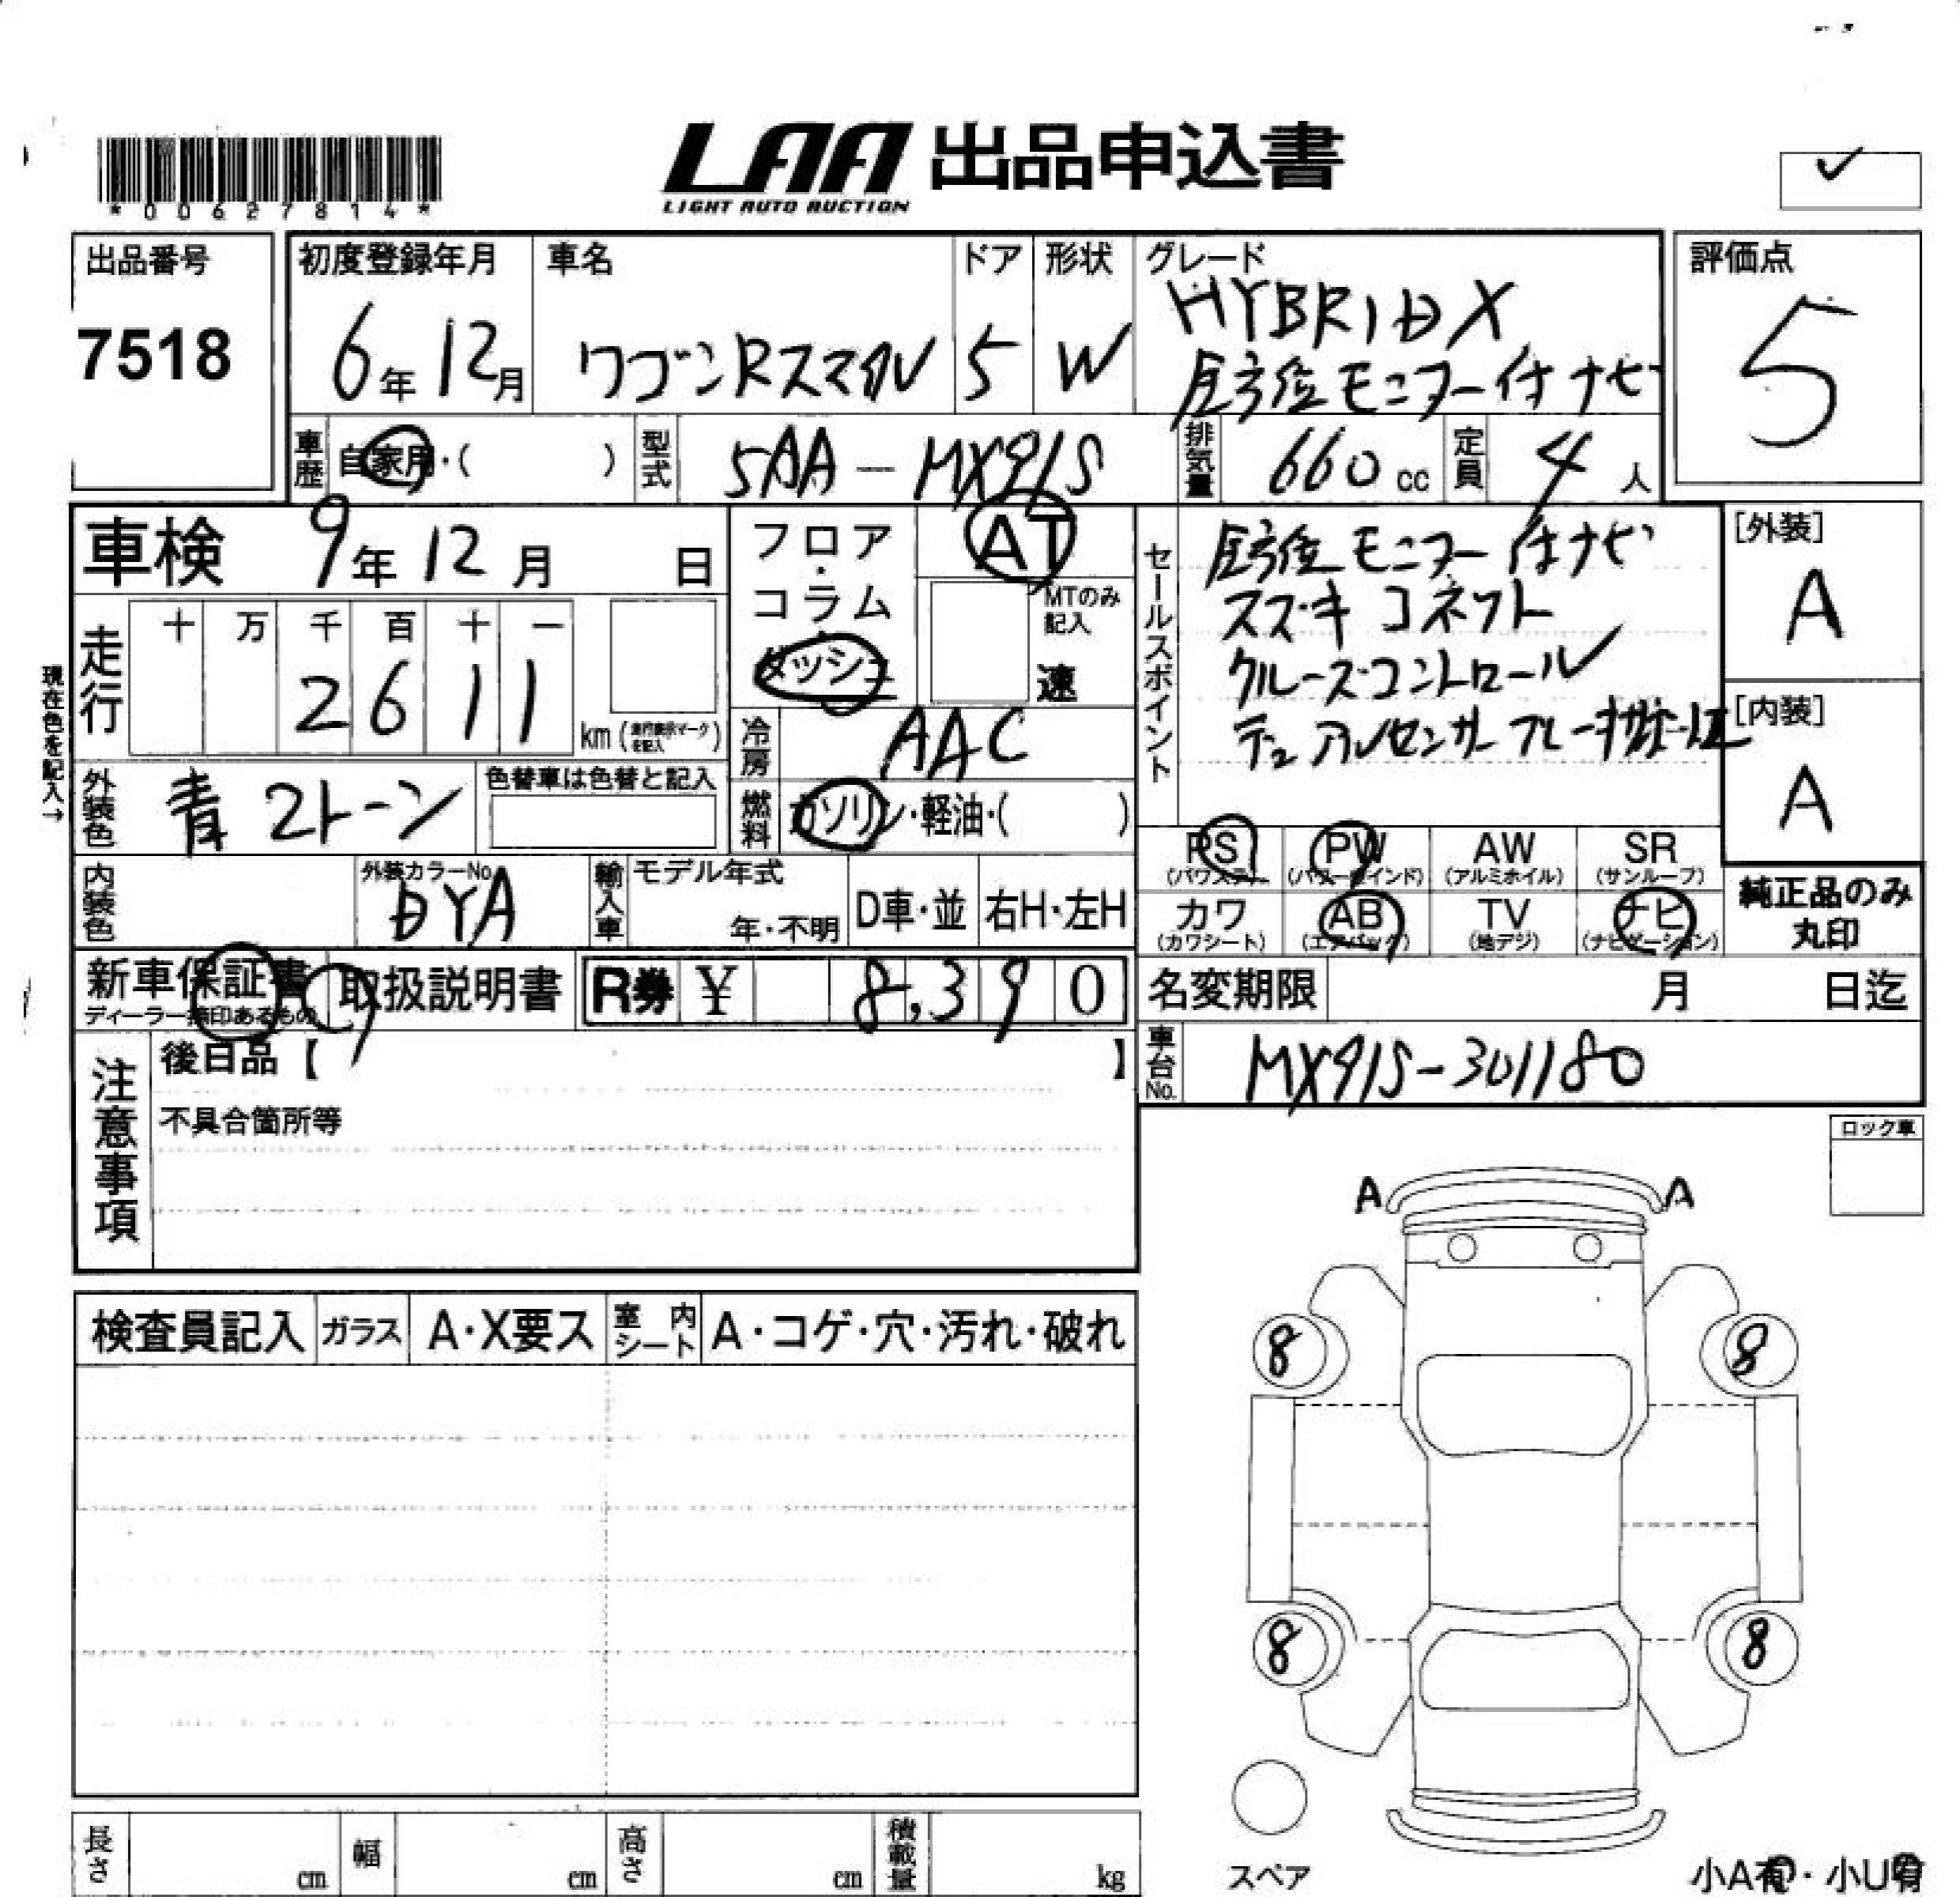 *00627814*
LAA 出品申込書
LIGHT AUTO AUCTION
✓
出品番号
7518
初度登録年月
6年12月
車名
ワゴンRスマイル
ドア
5
形状
W
グレード
HYBRID X
全方位モニター付ナビ
評価点
5
車歴 自家用・( )
型式 5AA-MX91S
排気量 660cc
定員 4人
車検 9年12月 日
フロア・コラム・ダッシュ
AT
MTのみ記入
速
走行 十 万 千 百 十 一
2 6 1 1
km (走行表示マークを記入)
現在色を記入→
冷房 AAC
外装色 青2トーン
色替車は色替と記入
燃料 ガソリン・軽油・( )
内装色
外装カラーNo.
DYA
輸入車 モデル年式
年・不明
D車・並
右H・左H
セールスポイント
全方位モニター付ナビ
スズキコネクト
クルーズコントロール
デュアルセンサーブレーキサポートII
[外装]
A
[内装]
A
PS (パワステ)
PW (パワーウインド)
AW (アルミホイル)
SR (サンルーフ)
カワ (カワシート)
AB (エアバック)
TV (地デジ)
ナビ (ナビゲーション)
純正品のみ丸印
新車保証書
ディーラー捺印あるもの
取扱説明書
R券 ¥ 8,390
名変期限 月 日迄
車台No. MX91S-301180
注意事項
後日品【 】
不具合箇所等
ロック車
検査員記入
ガラス A・X要ス
室内シート A・コゲ・穴・汚れ・破れ
A A
8 8
8 8
スペア
長さ cm
幅 cm
高さ cm
積載量 kg
小A有・小U有